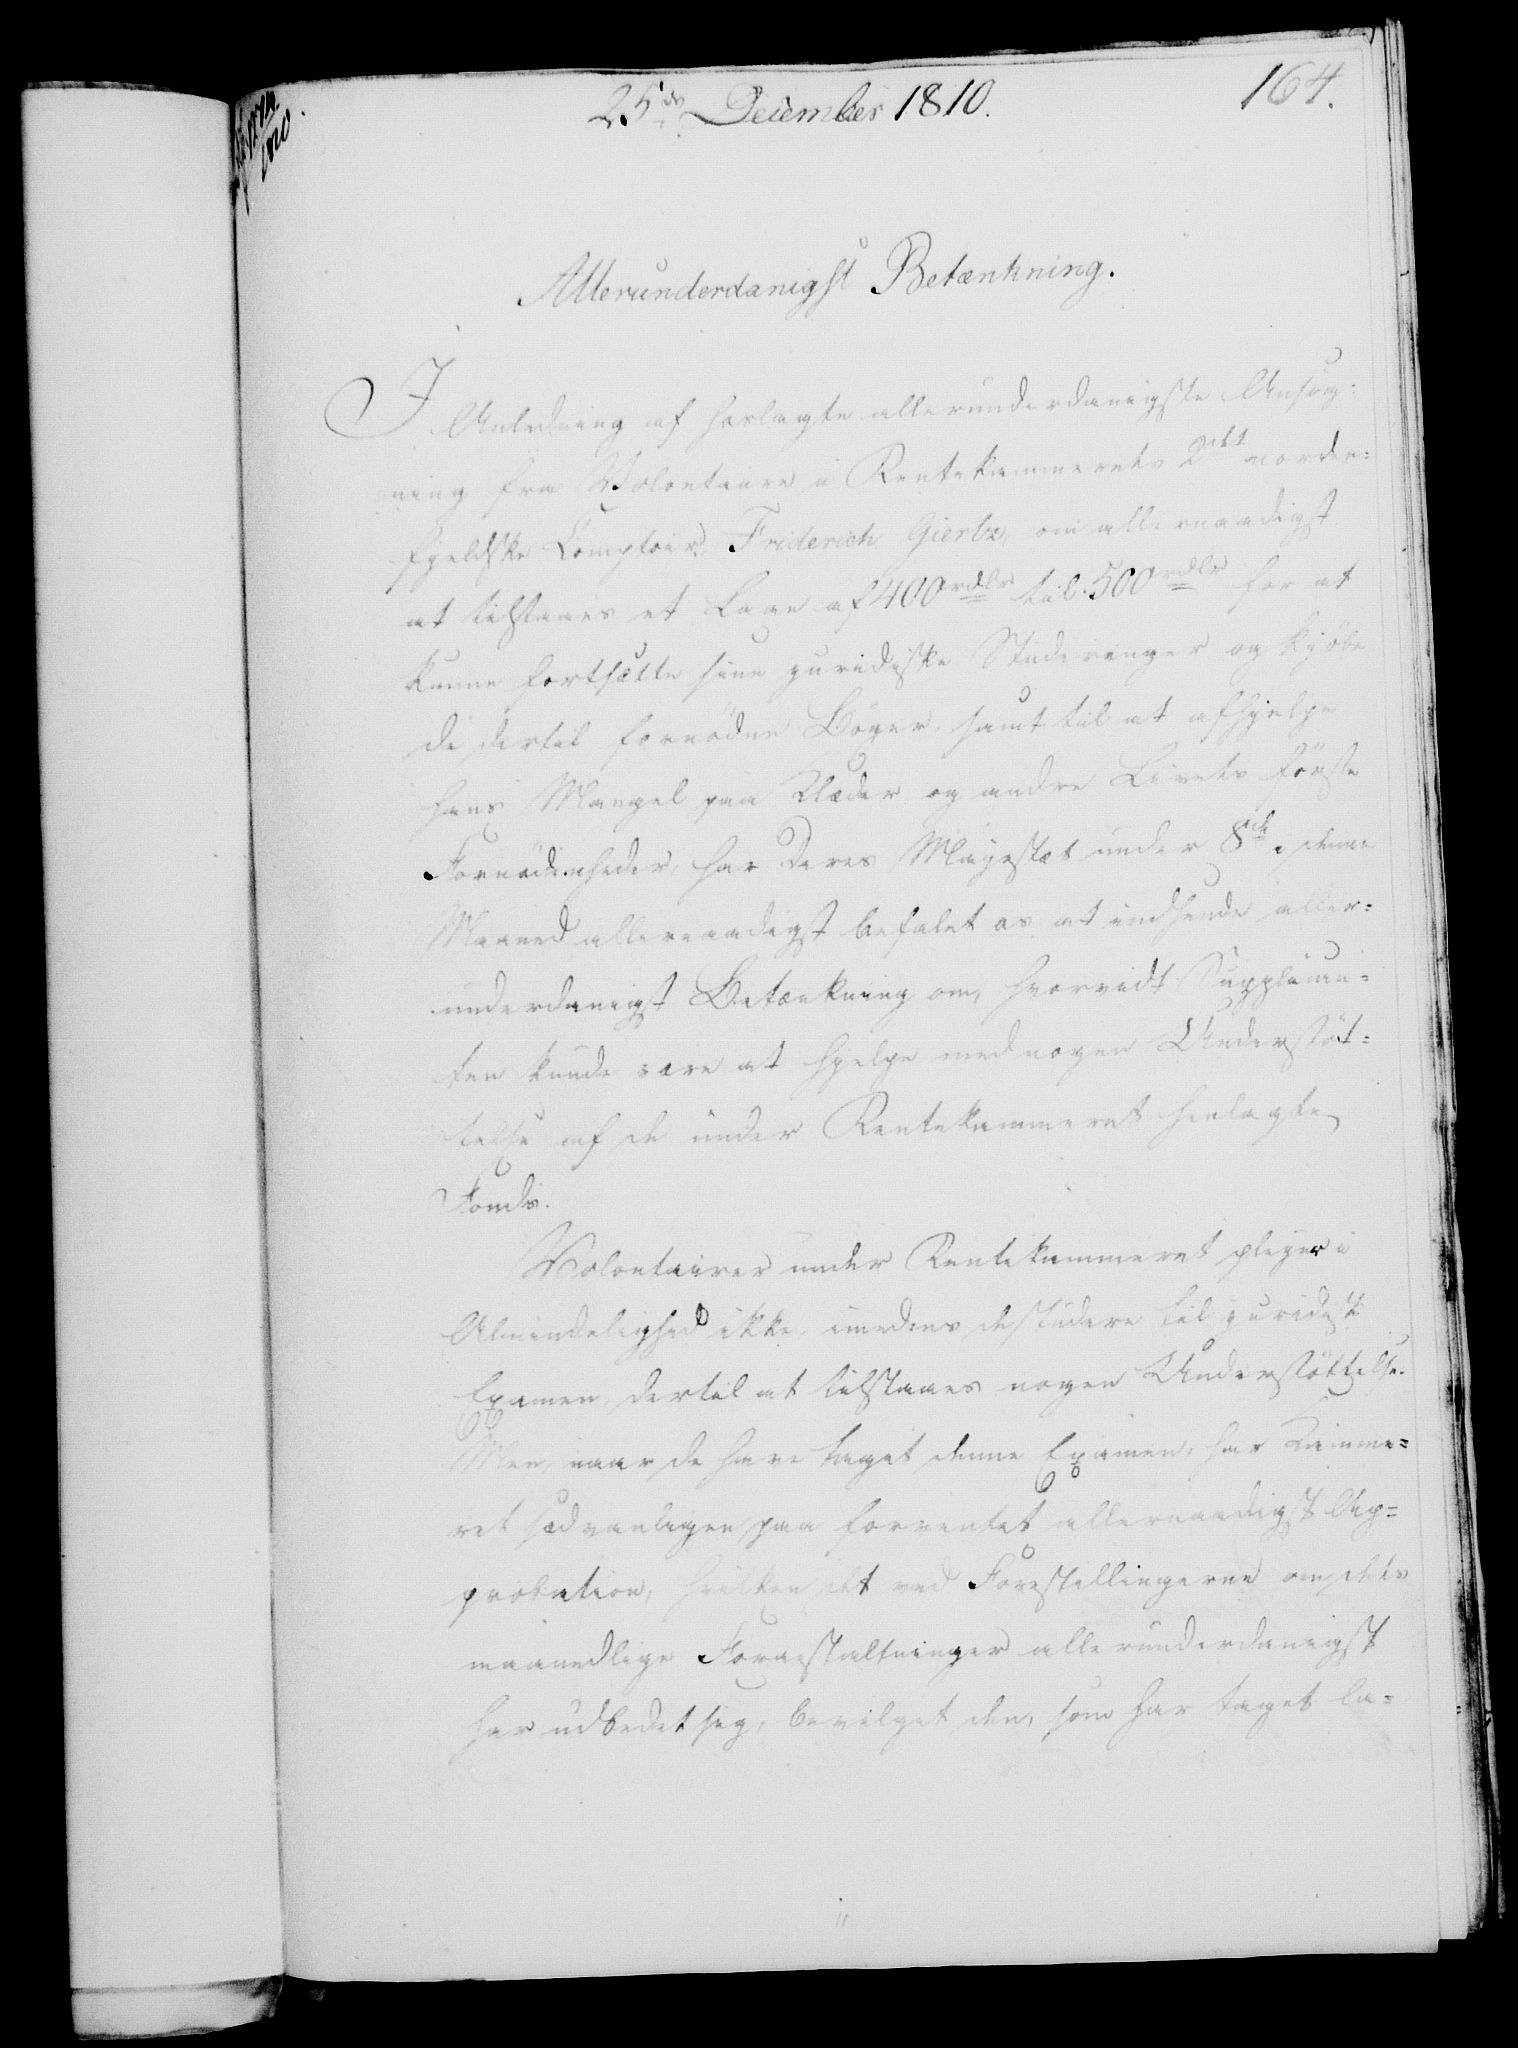 25de December 1810.
164.
Allerunderdanigst Betænkning.
I Anledning af hoslagte allerunderdanigste Ansøg:
ning fra Volontaire i Rentekammerets 2det norden:
fjeldske Comptoir, Friderich Gierløv, om allernaadigst
at tilstaaes et Laan af 400 rdlr til 500 rdlr for at
kunne fortsætte sine juridiske Studeringer og kjøbe
de dertil fornødne Bøger, samt til at afhjelpe
hans Mangel paa Klæder og andre Livets første
Fornødenheder, har Deres Majestæt under 8de i denne
Maaned allernaadigst befalet os at indsende aller=
underdanigst Betænkning om, hvorvidt Supplican=
ten kunde være at hjelpe med nogen Understøt=
telse af de under Rentekammeret henlagte
Fonds.
Volontairer under Rentekammeret pleger i
Almindelighed ikke, imedens de studere til juridisk
Examen, dertil at tilstaaes nogen Understøttelse.
Men, naar de have taget denne Examen, har Kamme=
ret sædvanligen paa forventet allernaadigst Ap=
probation, hvilken det ved Forestillingerne om dets
maanedlige Foranstaltninger allerunderdanigst
har udbedet sig, bevilget den, som har taget la=